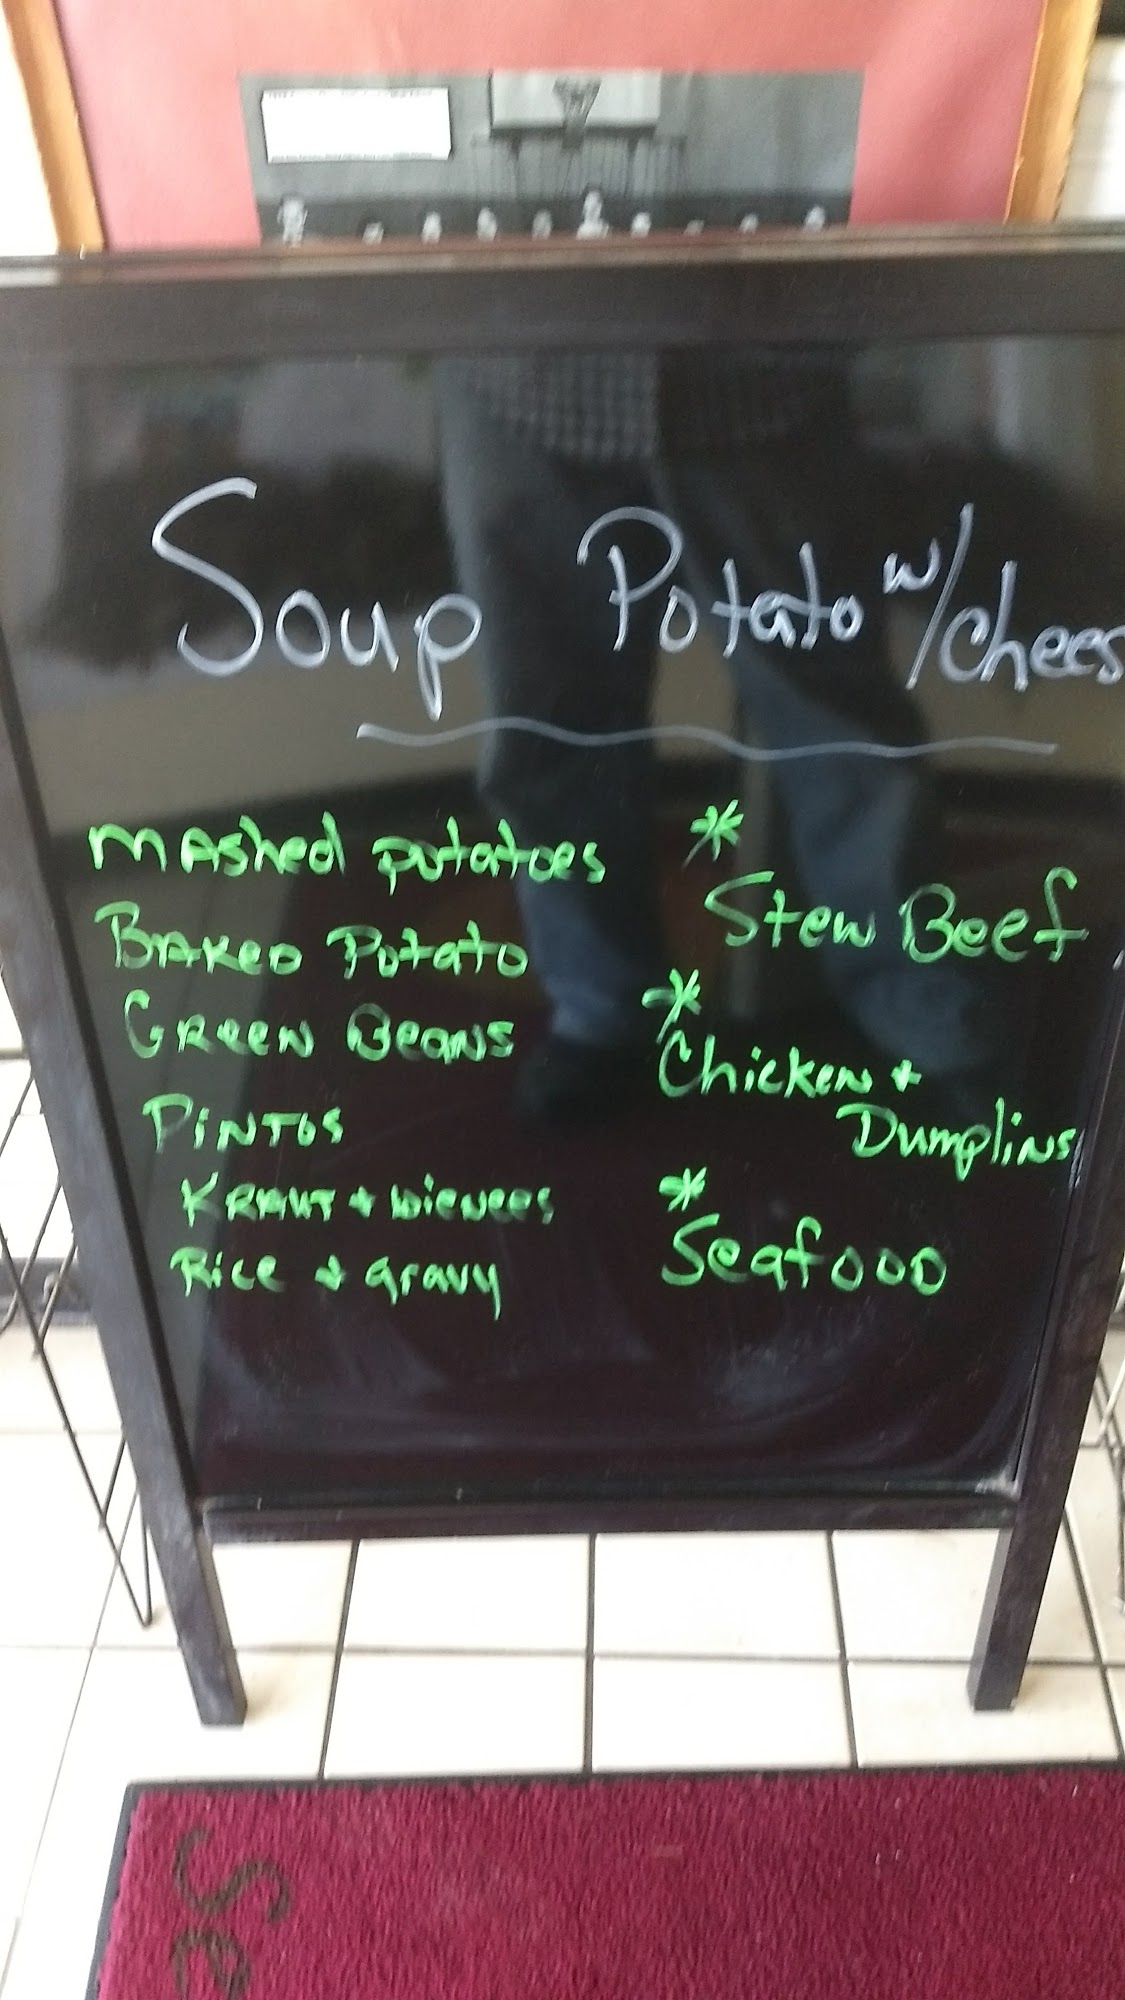 Soup Potato w/chees
Mashed potatoes
Baked Potato
Green Beans
Pintos
Kraut + wieners
Rice + gravy
*
Stew Beef
*
Chicken +
Dumplins
*
Seafood
Se